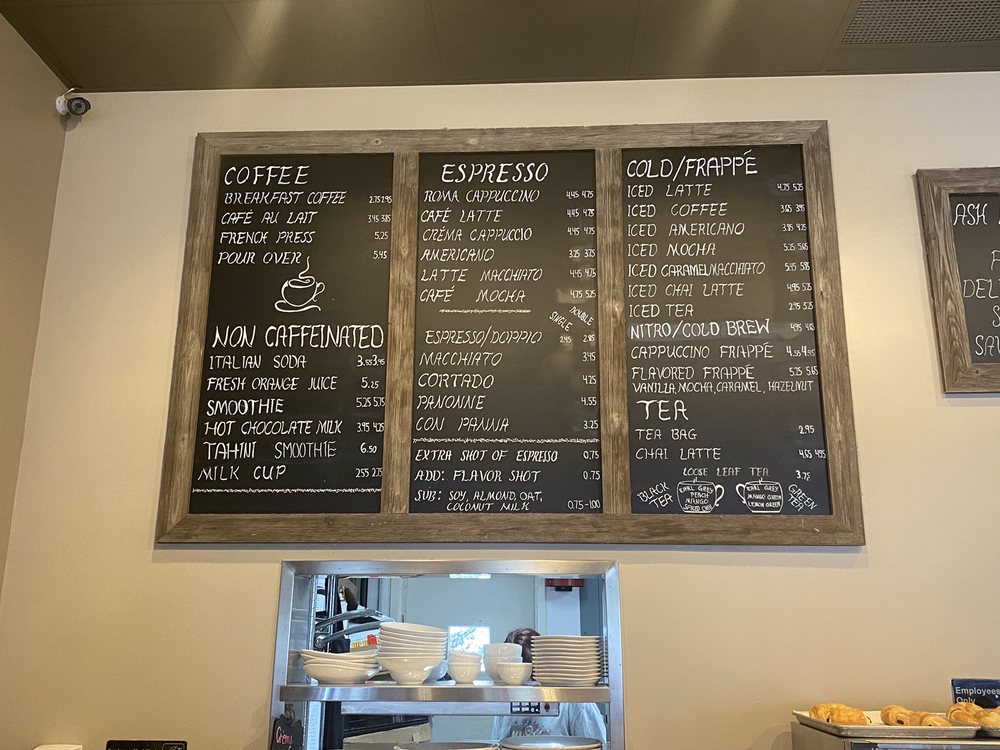 COFFEE
BREAKFAST COFFEE 2.75 2.95
CAFÉ AU LAIT 3.45 3.85
FRENCH PRESS 5.25
POUR OVER 5.45
NON CAFFEINATED
ITALIAN SODA 3.55 3.95
FRESH ORANGE JUICE 5.25
SMOOTHIE 5.25 5.75
HOT CHOCOLATE MILK 3.95 4.25
TAHINI SMOOTHIE 6.50
MILK CUP 2.55 2.75
ESPRESSO
ROMA CAPPUCCINO 4.45 4.75
CAFÉ LATTE 4.45 4.75
CRÉMA CAPPUCCIO 4.45 4.75
AMERICANO 3.25 3.75
LATTE MACCHIATO 4.45 4.75
CAFÉ MOCHA 4.75 5.25
SINGLE DOUBLE
ESPRESSO/DOPPIO 2.45 2.85
MACCHIATO 3.45
CORTADO 4.25
PANONNE 4.55
CON PANNA 3.25
EXTRA SHOT OF ESPRESSO 0.75
ADD: FLAVOR SHOT 0.75
SUB: SOY, ALMOND, OAT,
COCONUT MILK 0.75-1.00
COLD/FRAPPÉ
ICED LATTE 4.75 5.25
ICED COFFEE 3.65 3.95
ICED AMERICANO 3.85 4.25
ICED MOCHA 5.25 5.65
ICED CARAMEL MACCHIATO 5.45 5.85
ICED CHAI LATTE 4.95 5.25
ICED TEA 2.95 3.25
NITRO/COLD BREW 4.95
CAPPUCCINO FRAPPÉ 4.55 4.95
FLAVORED FRAPPÉ 5.25 5.65
VANILLA, MOCHA, CARAMEL, HAZELNUT
TEA
TEA BAG 2.95
CHAI LATTE 4.55 4.95
LOOSE LEAF TEA 3.75
BLACK TEA
EARL GREY
PEACH
MANGO
SPICED CHAI
EARL GREY
MANGO GREEN
LEMON GREEN
GREEN TEA
ASH
DEL
S
SA
Employees
Only